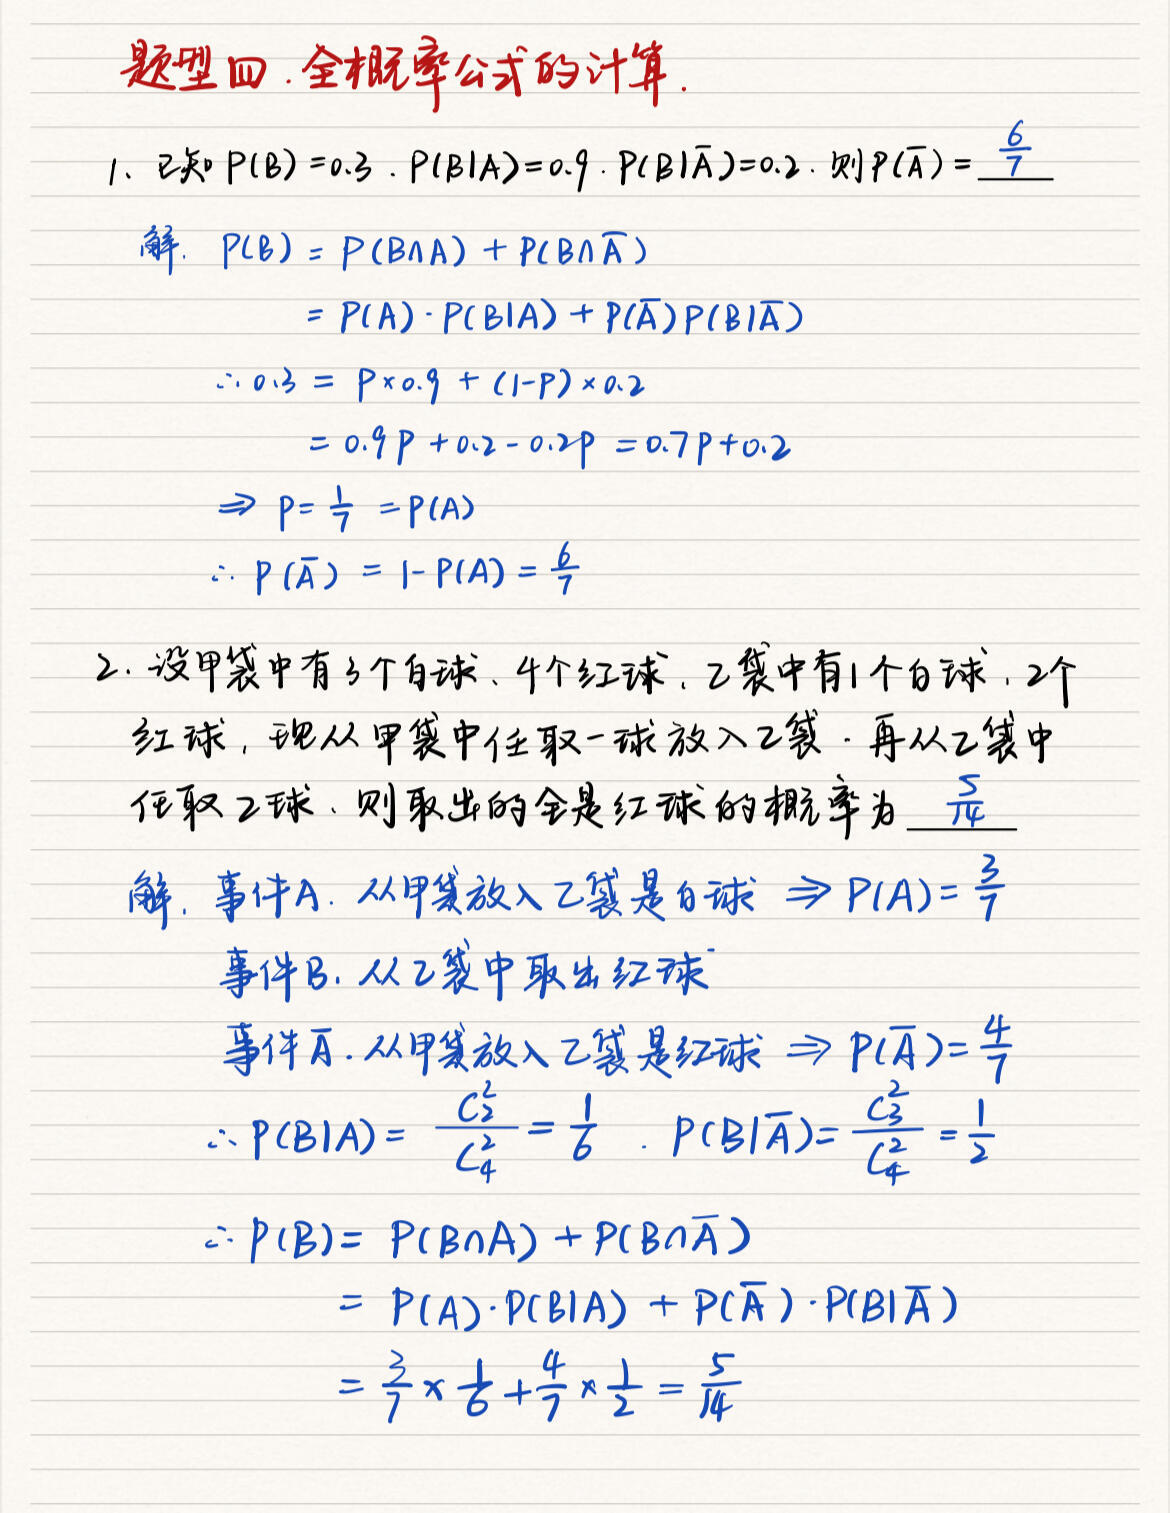 题型四.全概率公式的计算.
1、已知P(B)=0.3.P(B|A)=0.9.P(B|Ā)=0.2.则P(Ā)=6/7
解.P(B)=P(B∩A)+P(B∩Ā)
=P(A)·P(B|A)+P(Ā)P(B|Ā)
∴0.3=P×0.9+(1-P)×0.2
=0.9P+0.2-0.2P=0.7P+0.2
⇒P=1/7=P(A)
∴P(Ā)=1-P(A)=6/7
2.设甲袋中有3个白球、4个红球、乙袋中有1个白球、2个
红球,现从甲袋中任取一球放入乙袋.再从乙袋中
任取2球、则取出的全是红球的概率为5/14
解.事件A.从甲袋放入乙袋是白球⇒P(A)=3/7
事件B.从乙袋中取出红球
事件Ā.从甲袋放入乙袋是红球⇒P(Ā)=4/7
∴P(B|A)=C₂²/C₄²=1/6.P(B|Ā)=C₃²/C₄²=1/2
∴P(B)=P(B∩A)+P(B∩Ā)
=P(A)·P(B|A)+P(Ā)·P(B|Ā)
=3/7×1/6+4/7×1/2=5/14